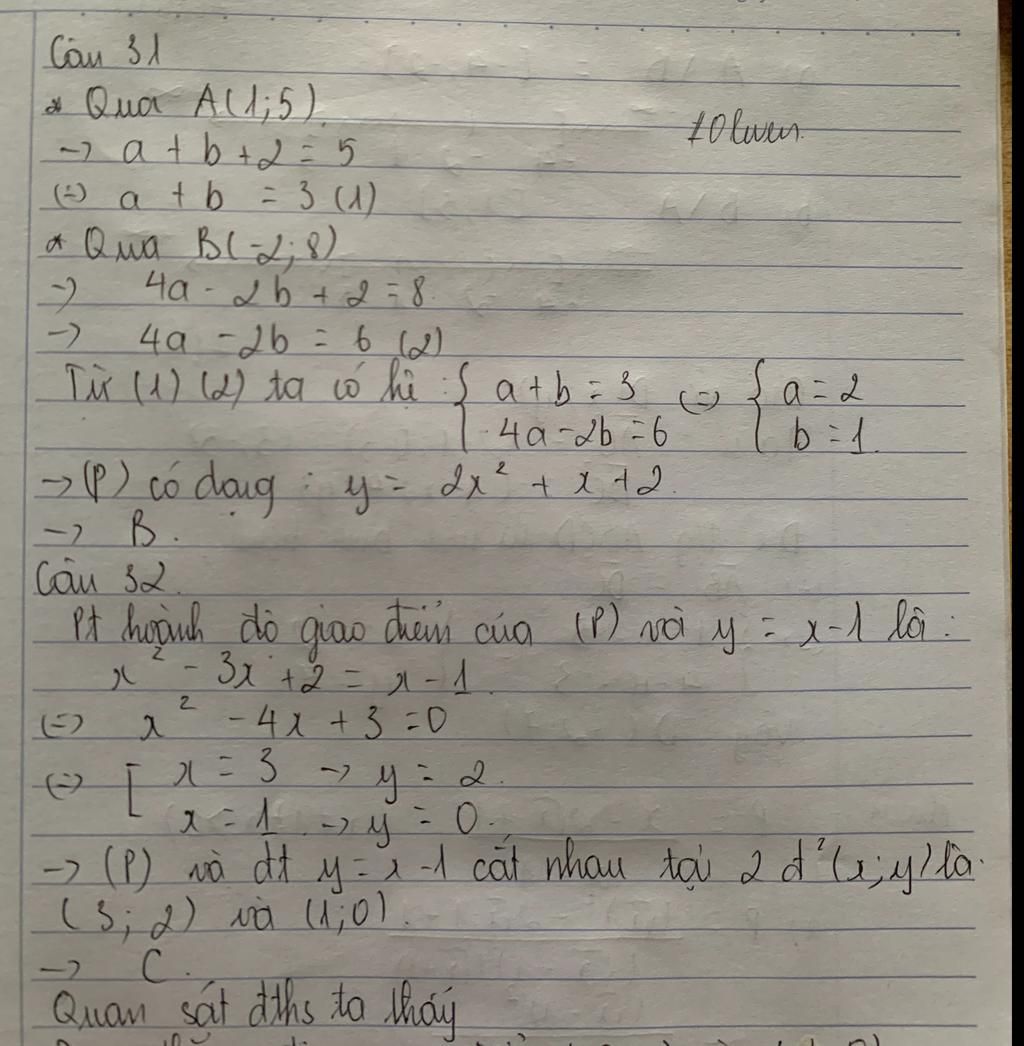 Câu 31
* Qua A(1;5).
→ a + b + 2 = 5
(=) a + b = 3 (1)
* Qua B(-2;8)
→ 4a - 2b + 2 = 8.
→ 4a - 2b = 6 (2)
Từ (1) (2) ta có hệ : { a + b = 3 (=) { a = 2
4a - 2b = 6 b = 1.
→ (P) có dạng : y = 2x² + x + 2.
→ B.
Câu 32.
Pt hoành độ giao điểm của (P) và y = x - 1 là :
x² - 3x + 2 = x - 1.
(=) x² - 4x + 3 = 0
(=) [ x = 3 → y = 2.
x = 1 → y = 0.
→ (P) và đt y = x - 1 cắt nhau tại 2 đ² (x;y) là:
(3; 2) và (1;0).
→ C.
Quan sát đths ta thấy